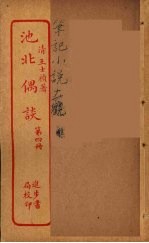 清王士禎著
池北偶談
第四冊
進步書局校印
筆記小說大觀